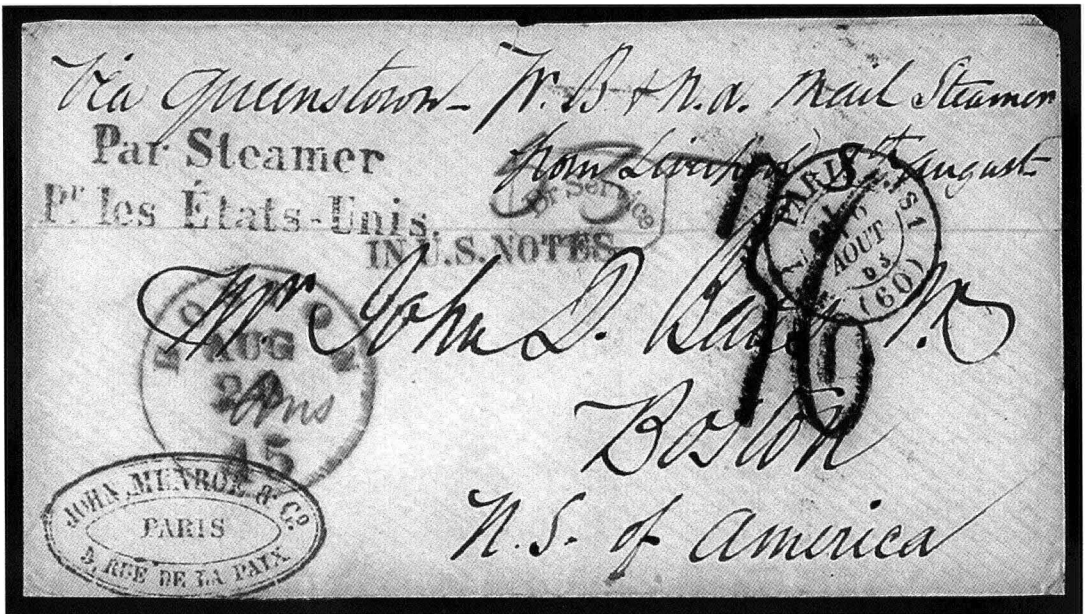 Via Queenstown - Pr. B & N.A. Mail Steamer
from Liverpool 8th August
Par Steamer
Pr les États-Unis.
IN U.S. NOTES
or Service
PARIS
AOUT
(60)
Mr John D.
Boston
U.S. of America
BOSTON
AUG
45
JOHN MUNROE & Co
PARIS
RUE DE LA PAIX